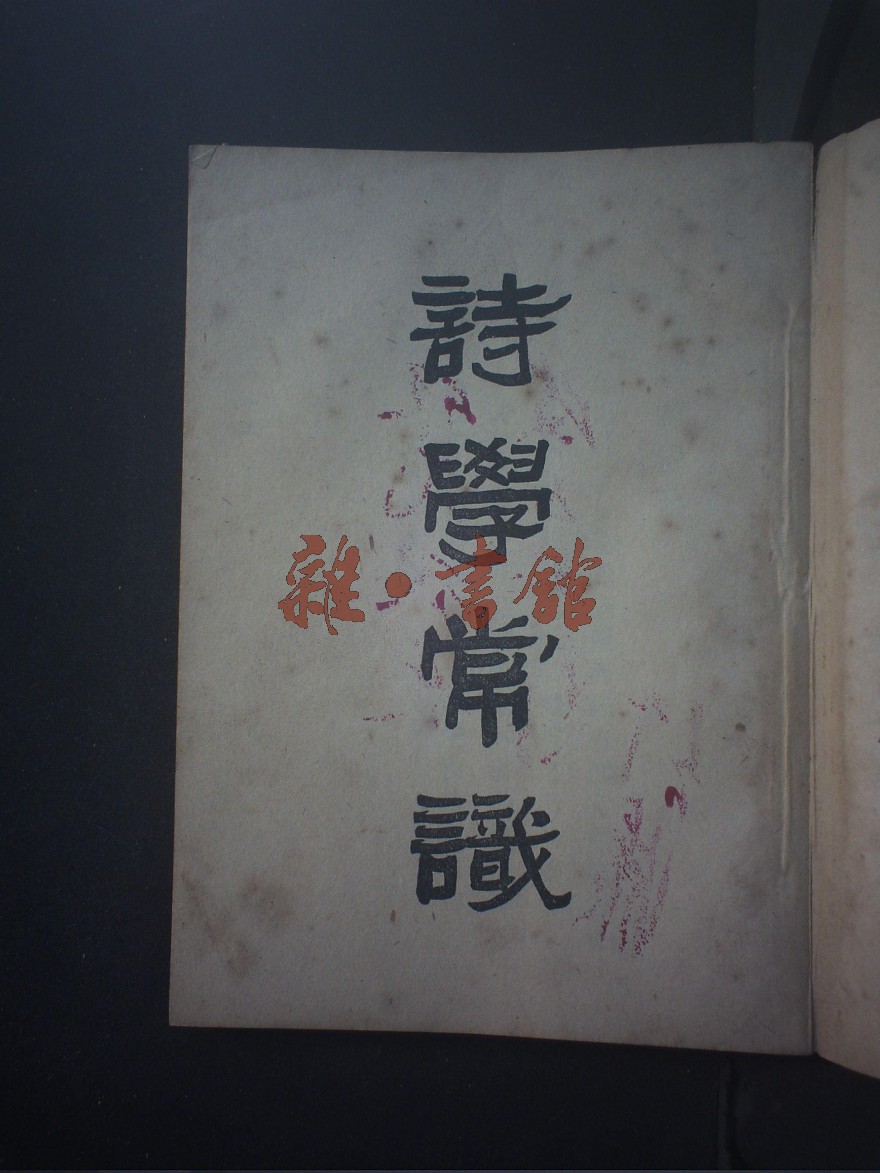 詩學常識
雜·書館